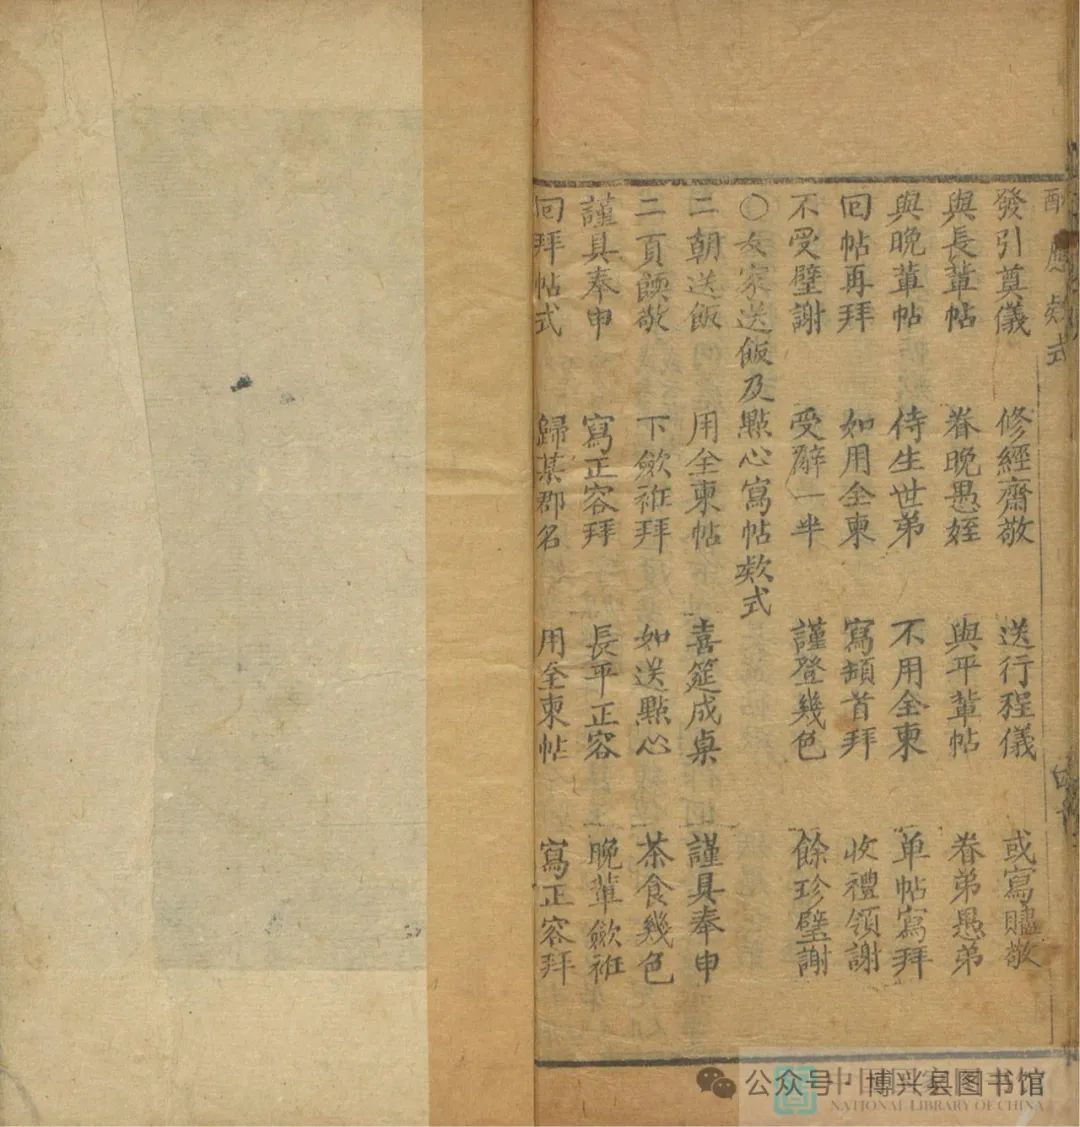 應欵式
發引奠儀　修經齋敬　送行程儀　或寫贐敬
與長輩帖　眷晚愚姪　與平輩帖　眷弟愚弟
與晚輩帖　侍生世弟　不用全柬　单帖寫拜
回帖再拜　如用全柬　寫頓首拜　收禮領謝
不受璧謝　受辭一半　謹登幾色　餘珍璧謝
〇女家送飯及點心寫帖欵式
二朝送飯　用全柬帖　喜筵成桌　謹具奉申
二頁頥敬　下歛衽拜　如送點心　茶食幾色
謹具奉申　寫正容拜　長平正容　晚輩歛衽
回拜帖式　歸某郡名　用全柬帖　寫正容拜
公众号·博兴县图书馆
NATIONAL LIBRARY OF CHINA